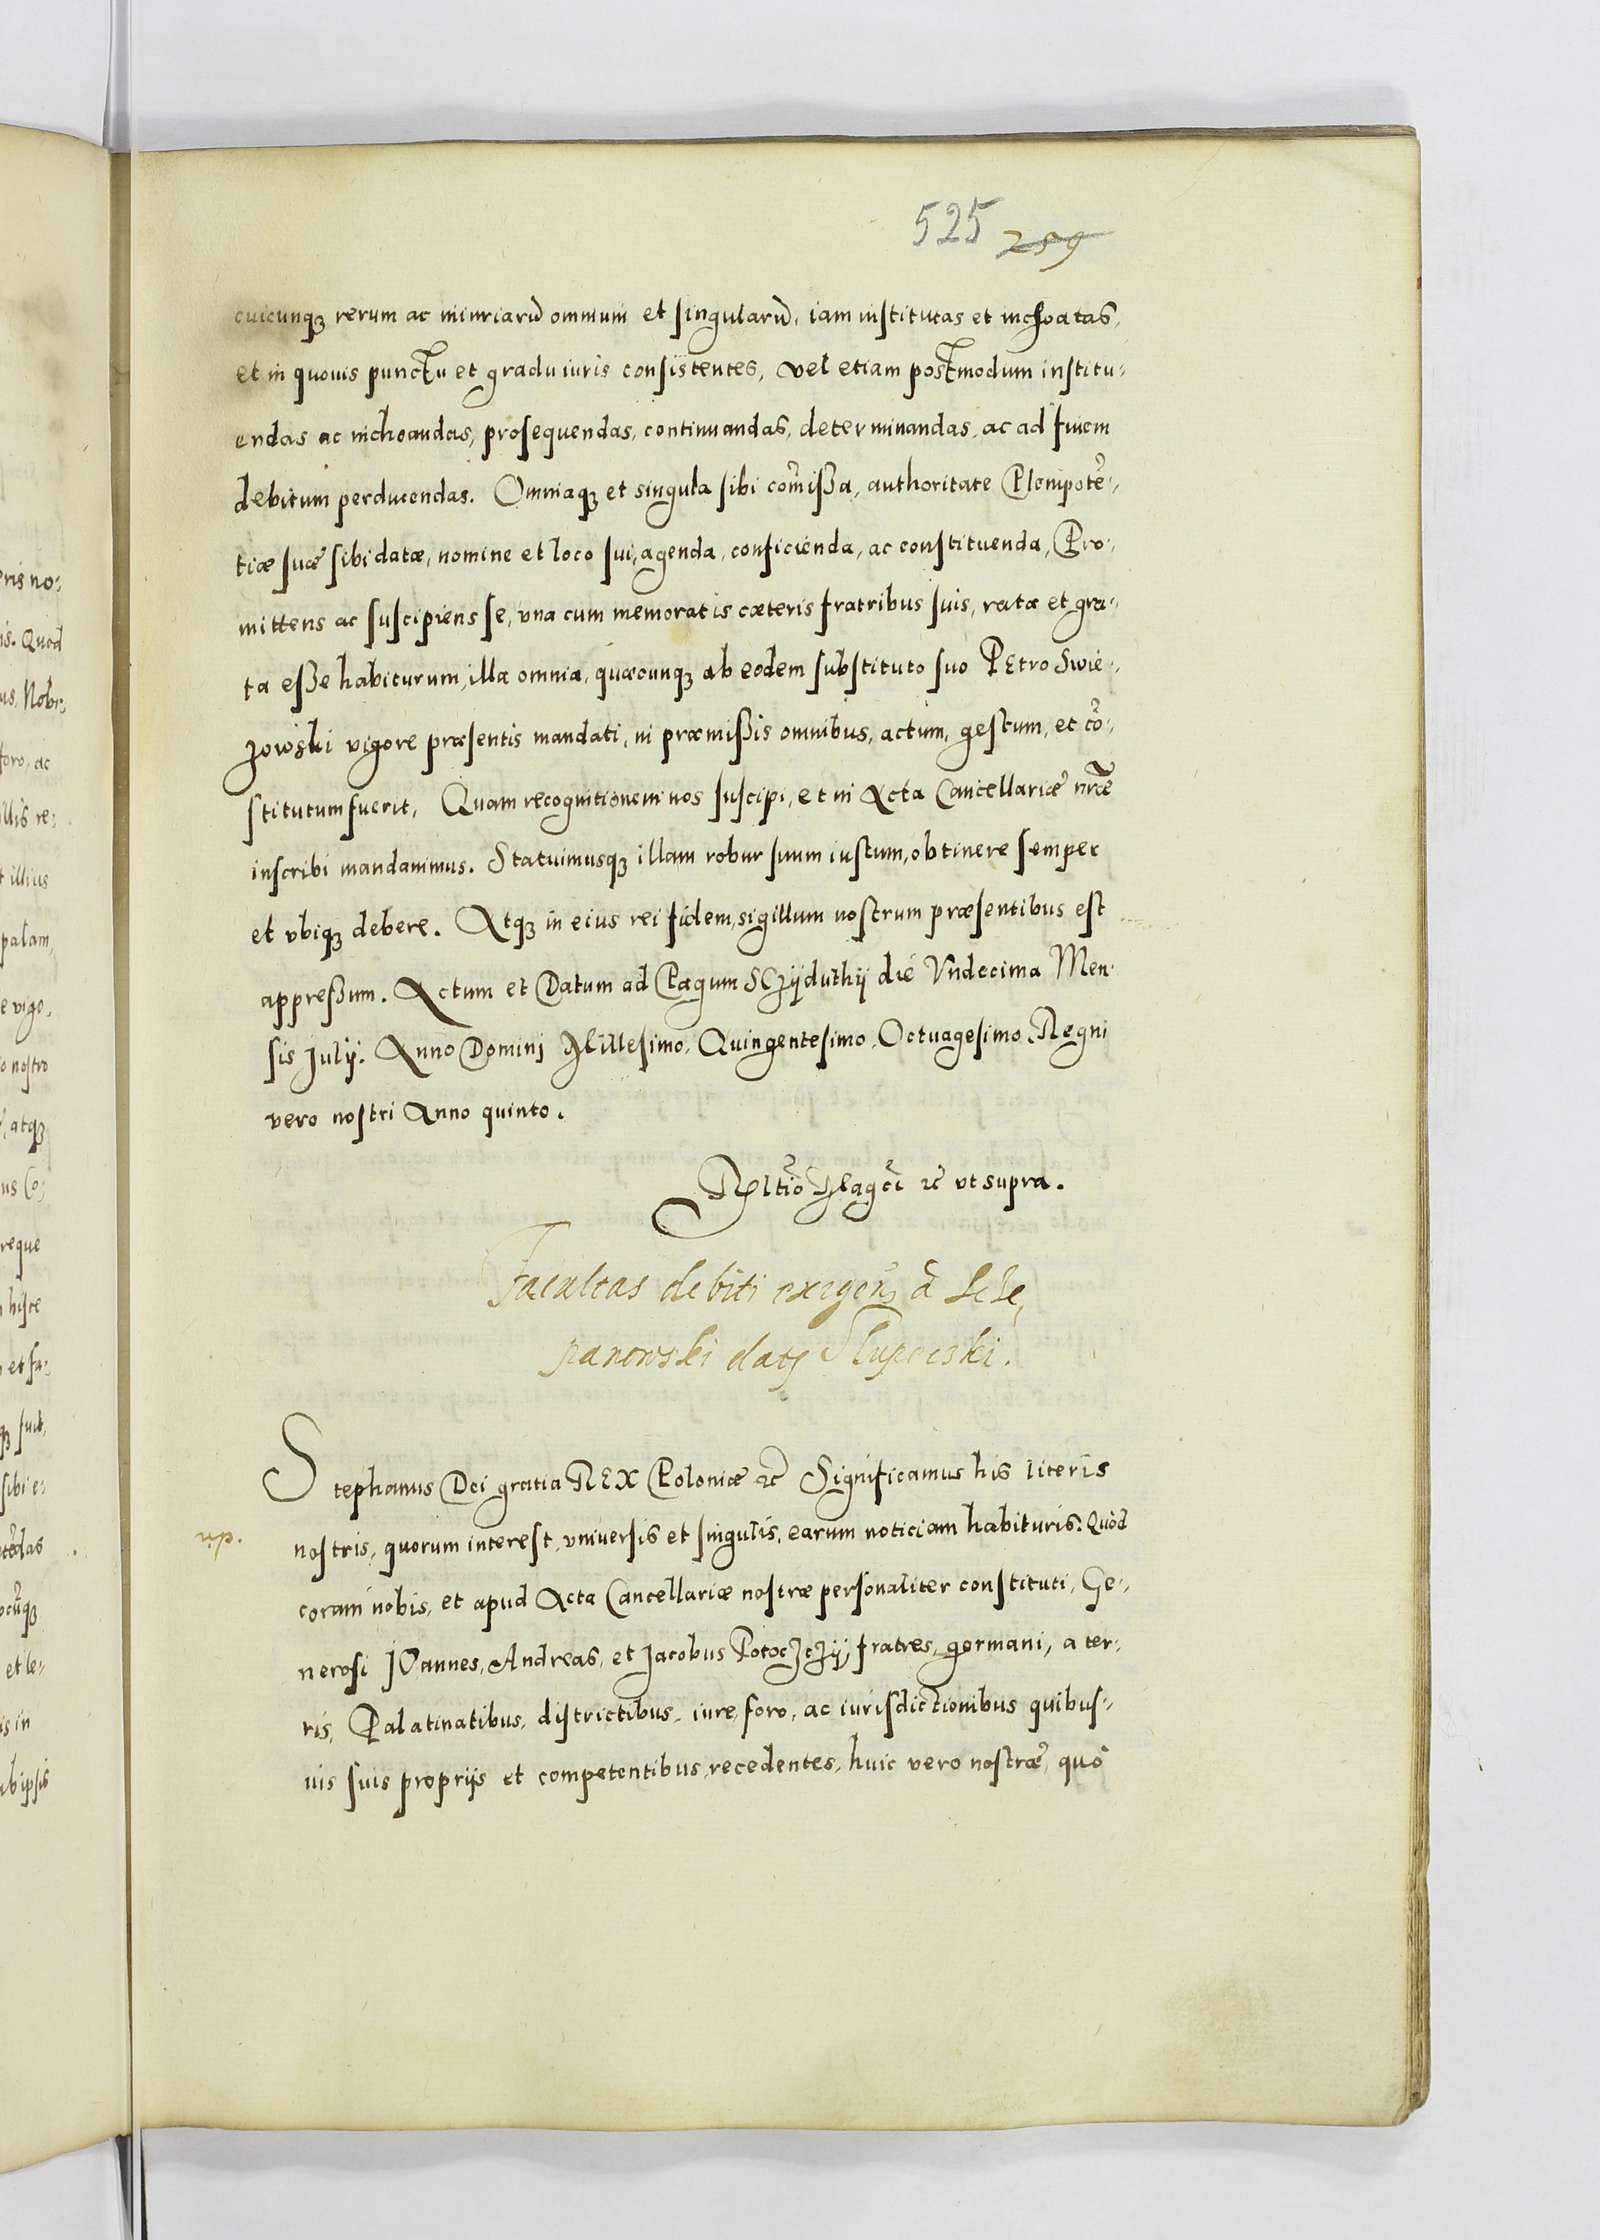 525 259
cuicunq₃ rerum ac iniuriarū omnium et singularū, iam institutas et inchoatas,
et in quovis punctu et gradu iuris consistentes, vel etiam postmodum institu-
endas ac inchoandas, prosequendas, continuandas, determinandas, ac ad finem
debitum perducendas. Omniaq₃ et singula sibi com̃issa, authoritate Plenipotē-
tiæ suæ sibi datæ, nomine et loco sui, agenda, conficienda, ac constituenda, Pro-
mittens ac suscipiens se, vna cum memoratis cæteris fratribus suis, rata et gra-
ta esse habiturum, illa omnia, quæcunq₃ ab eodem substituto suo PEtro Swie-
zowski vigore præsentis mandati, in præmissis omnibus, actum, gestum, et cō-
stitutum fuerit, Quam recognitionem nos suscipi, et in Acta Cancellariæ nr̃æ
inscribi mandavimus. Statuimusq₃ illam robur suum iustum, obtinere semper
et vbiq₃ debere. Atq₃ in eius rei fidem, sigillum nostrum præsentibus est
appressum. Actum et Datum ad Pagum SCzÿduthÿ die Vndecima Men-
sis Julÿ. Anno Dominj Millesimo, Quingentesimo, Octuagesimo, Regni
vero nostri Anno quinto.
Rltiõ Magcĩ &c̃ vt supra.
Facultas debiti exigen̄ à Scze
panowski dats Slupecski.
Stephanus Dei gratia REX Poloniæ &c̃ Significamus his literis
nostris, quorum interest, vniversis et singulis, earum noticiam habituris. Quòd
coram nobis, et apud Acta Cancellariæ nostræ personaliter constituti, Ge-
nerosi JOannes, Andreas, et Jacobus Potoczczÿ, fratres, germani, a ter-
ris, Palatinatibus, districtibus, iure, foro, ac iurisdictionibus quibus-
vis suis proprijs et competentibus, recedentes, huic vero nostræ, quo
eris no-
is. Quod
us, Nobi-
foro, ac
illis re-
t illius
palam,
e vigo-
o nostro
, atq₃
us Co-
reque
hisce
et fa-
sibi e-
et le-
is in
ab ipsis